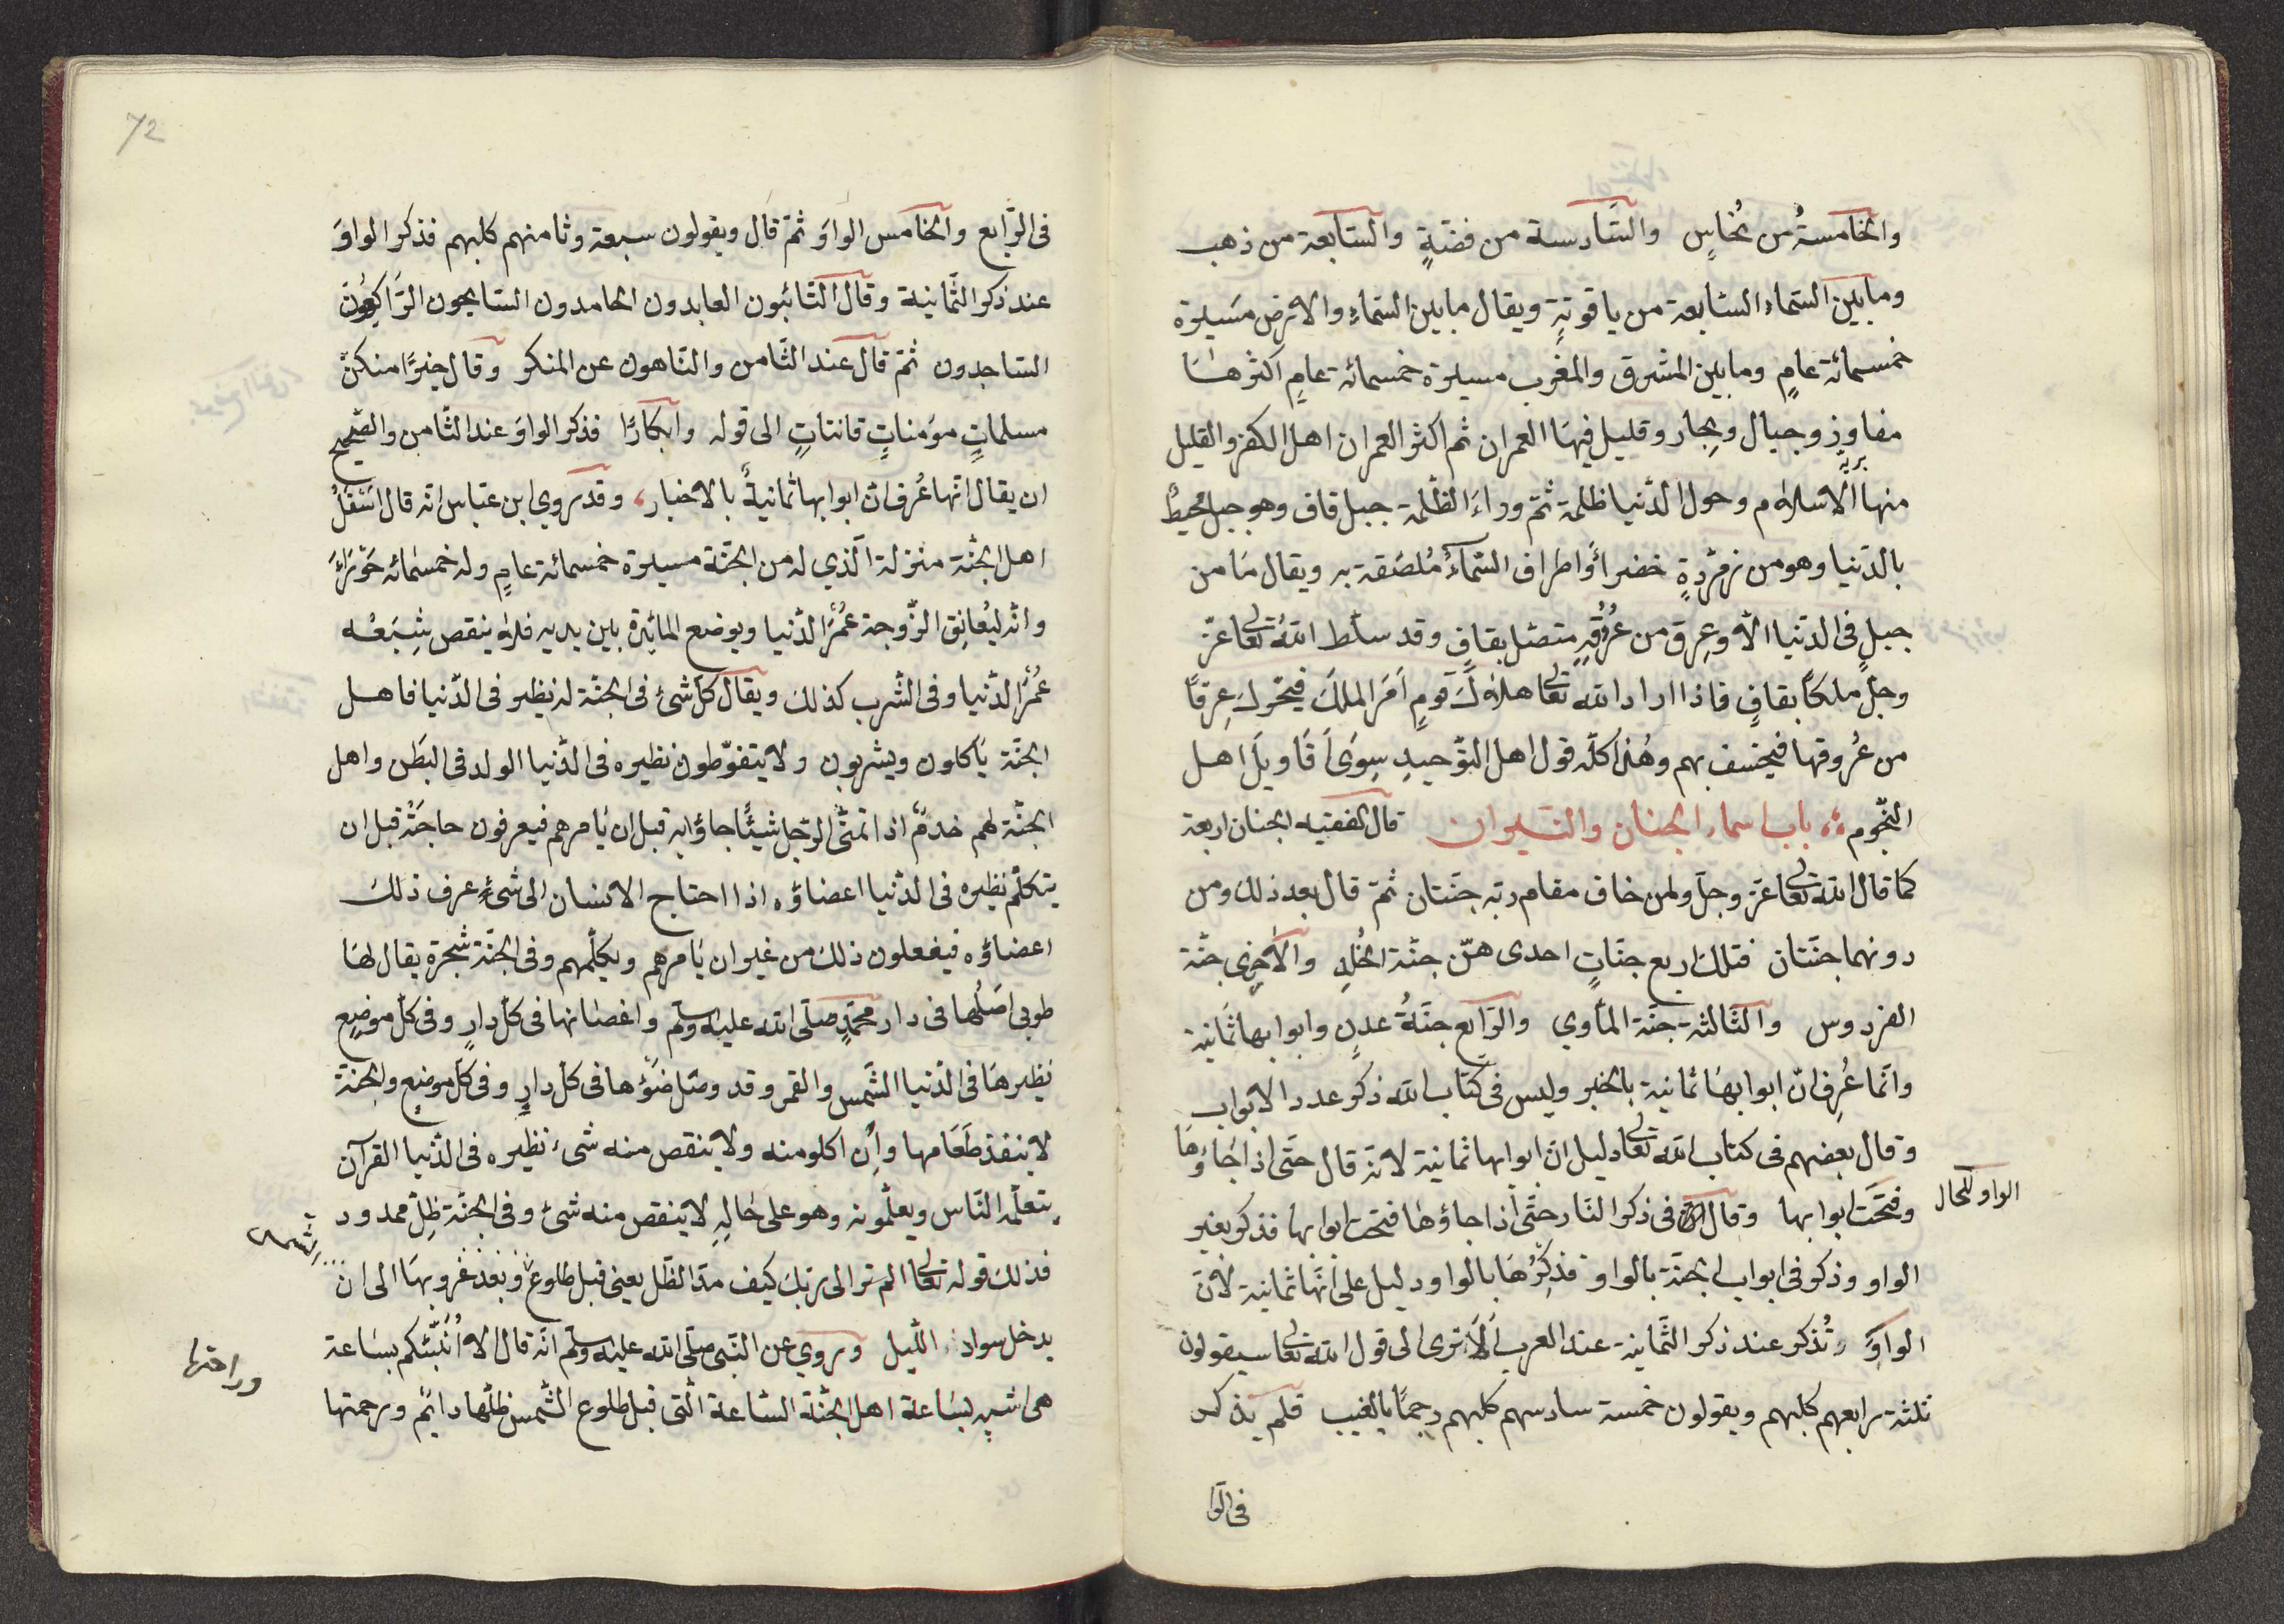 والخامسةُ من نُحاسٍ والسّادسة من فضّةٍ والسّابعة من ذهب
وما بين السّماء السّابعة من ياقوتةٍ ويقال ما بين السّماءِ والارض مسيرة
خمسمائة عامٍ وما بين المشرق والمغرب مسيرة خمسمائة عامٍ اكثرها
مفاوز وجبال وبحار وقليل فيها العمران ثم اكثر العمران اهل الكفر والقليل
منها الاسلام وحول الدّنيا ظلمة ثمّ وراءَ الظّلمة جبل قاف وهو جبل محيطٌ
بالدّنيا وهو من زمرّدةٍ خضراءَ واطراف السّماءِ مُلصَقة به ويقال ما من
جبلٍ فى الدّنيا الّا وعِرق من عُرُوقِهِ متصّل بقافٍ وقد سلّط اللّه تعالى عزّ
وجلّ ملكًا بقافٍ فاذا اراد الله تعالى هلاك قومٍ اَمَرَ الملَكَ فيحّرك عِرقًا
من عُروقها فيخسف بهم وهٰذا كلّه قول اهل التوّحيدِ سِوَى اَقَاويل اهل
النّجوم باب اسماء الجنان والنّيران قال الفقيه الجنان اربعة
كما قال اللّه تعالى عزّ وجلّ ولمن خاف مقام ربّه جنّتان ثمّ قال بعد ذلك ومن
دونهما جنّتان فتلك اربع جنّاتٍ احدى هنّ جنّة الخُلدِ والاُخرى جنّة
الفردوس والثّالثة جنّة المأوي والرّابع جنّةُ عدنٍ وابوابها ثمانية
وانّما عُرِف انّ ابوابها ثمانية بالخبر وليس فى كتاب الله ذكر عدد الابواب
وقال بعضهم فى كتاب الله تعالى دليل انّ ابوابها ثمانية لانّه قال حتّى اذا جاؤها
وفتحَت ابوابها وقال فى ذكر النّار حتّى اذا جاؤها فتحت ابوابها فذكر بغير
الواو للحال
الواو وذكر فى ابواب الجنّة بالواو فذِكْرُها بالواو دليل على انّها ثمانية لانّ
الواوَ تُذكر عند ذكر الثّمانية عند العرب اَلَا ترى الى قول الله تعالى سيقولون
ثلثة رابعهم كلبهم ويقولون خمسة سادسهم كلبهم رجمًا بالغيب فلم يذكر
فى الرّا
72
فى الرّابع والخامس الواوَ ثمّ قال ويقولون سبعة وثامنهم كلبهم فذكر الواوَ
عند ذكر الثّمانية وقال التّائبون العابدون الحامدون السّايحون الرّاكِعُونَ
السّاجدون ثمّ قال عند الثّامن والنّاهون عن المنكر وقال خيرًا منكنّ
مسلماتٍ مؤمناتٍ قانتاتٍ الى قوله وابكارًا فذكر الواوَ عند الثّامن والصّحيح
ان يقال انّها عُرف انّ ابوابها ثمانيةٌ بالاخبار وقد روي ابن عبّاس انّه قال اَسْفَلُ
اهل الجنّة منزلة الّذي له من الجنّة مسيرة خمسمائة عامٍ وله خمسمائه حَوْرَاءَ
وانّه ليُعانِق الزّوجة عُمُرَ الدّنيا ويوضع المائِدة بين يديه فلا ينقص شِبَعُه
عُمُرَ الدّنيا وفى الشّرب كذلك ويقال كلّ شئ فى الجنّة له نظير فى الدّنيا فاهل
الجنّة يأكلون ويشربون ولا يتغوّطون نظيره فى الدّنيا الولد فى البَطْن واهل
الجنّة لهم خدمٌ اذا تمنّى الرّجل شيئًا جاؤا به قبل ان يأمرهم فيعرفون حاجتَهُ قبل ان
يتكلّم نظيره فى الدّنيا اعضاؤه اذا احتاج الانسان الى شئٍ عرف ذلك
اعضاؤه فيفعلون ذلك من غير ان يأمرهم ويكلّمهم وفى الجنّة شجرة يقال لها
طوبى اصلُها فى دار محمّدٍ صلّى اللّه عليه وسلّم واغصانها فى كلّ دارٍ وفى كلّ موضِعٍ
نظيرها فى الدّنيا الشّمس والقمر وقد وصل ضوْؤها فى كلّ دارٍ وفى كلّ موضعٍ والجنّة
لا ينفذ طَعَامها واِن اكلو منه ولا ينقص منه شئ نظيره فى الدّنيا القرآن
يتعلّمه النّاس ويعلّمونه وهو على حَالِهِ لا ينقص منه شئ وفى الجنّة ظِلّ ممدود
فذلك قوله تعالى الم تر الى ربّك كيف مدّ الظّل يعنى قبل طلوع وبعد غروبها الى ان
يدخل سواد اللّيل وروي عن النّبى صلّى اللّه عليه وسلّم انّه قال الا اُنَبّئكم بسَاعة
هى اشبه بسَاعة اهل الجنّة السّاعة الّتى قبل طلوع الشّمس ظلّها دائم ورحمتها
وراحتها